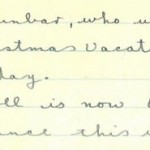 unbar, who
stmas vacat
day.
ll is now
nce this